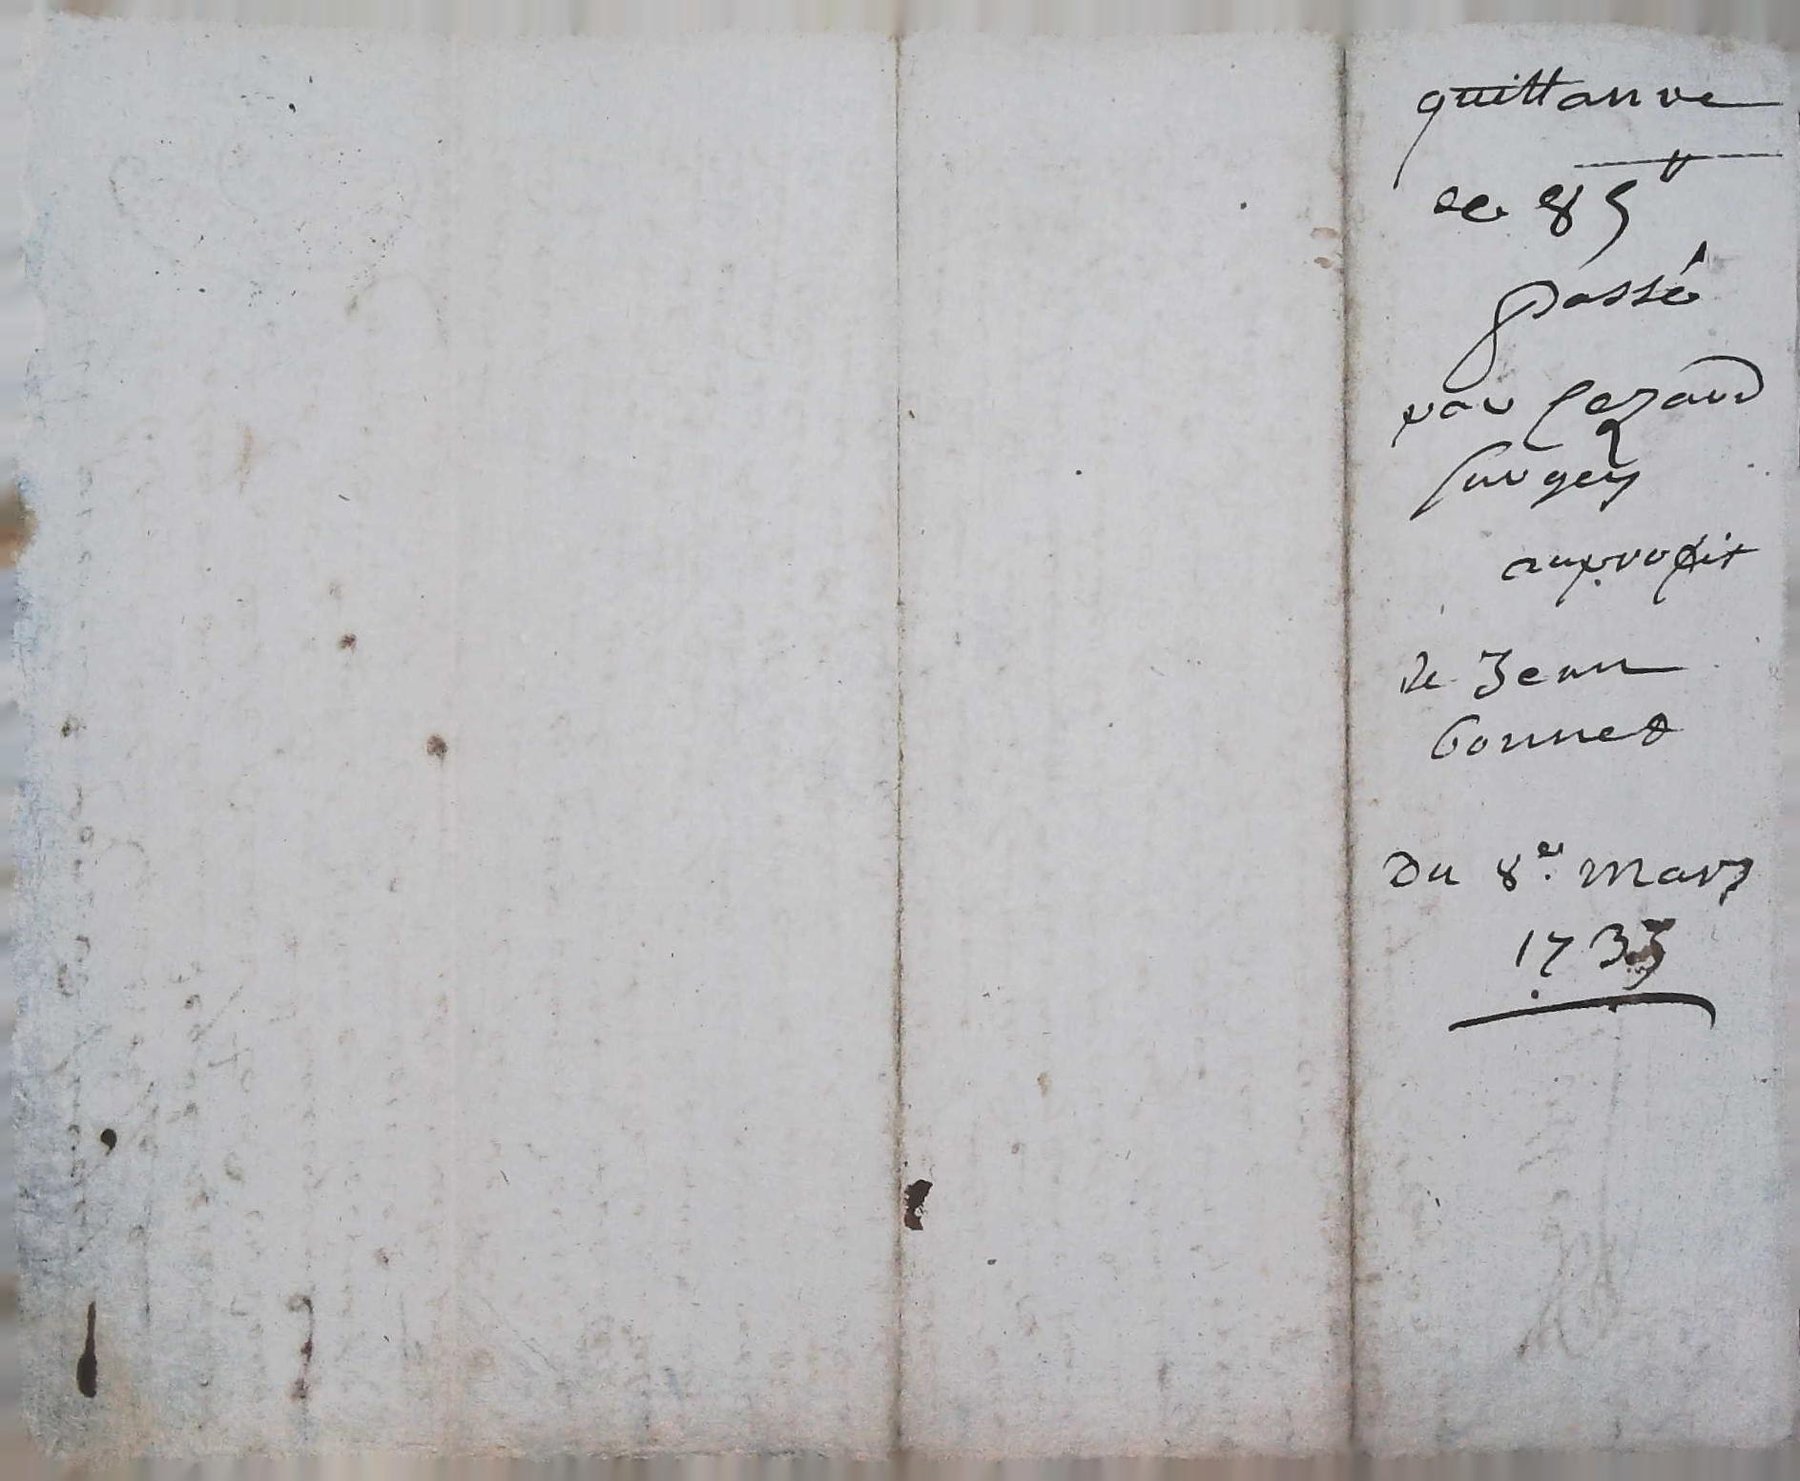 quittance
de 85 ₶
passé
par Cezard
surgey
auprofit
de Jean
bonnet
Du 8e. mars
1733